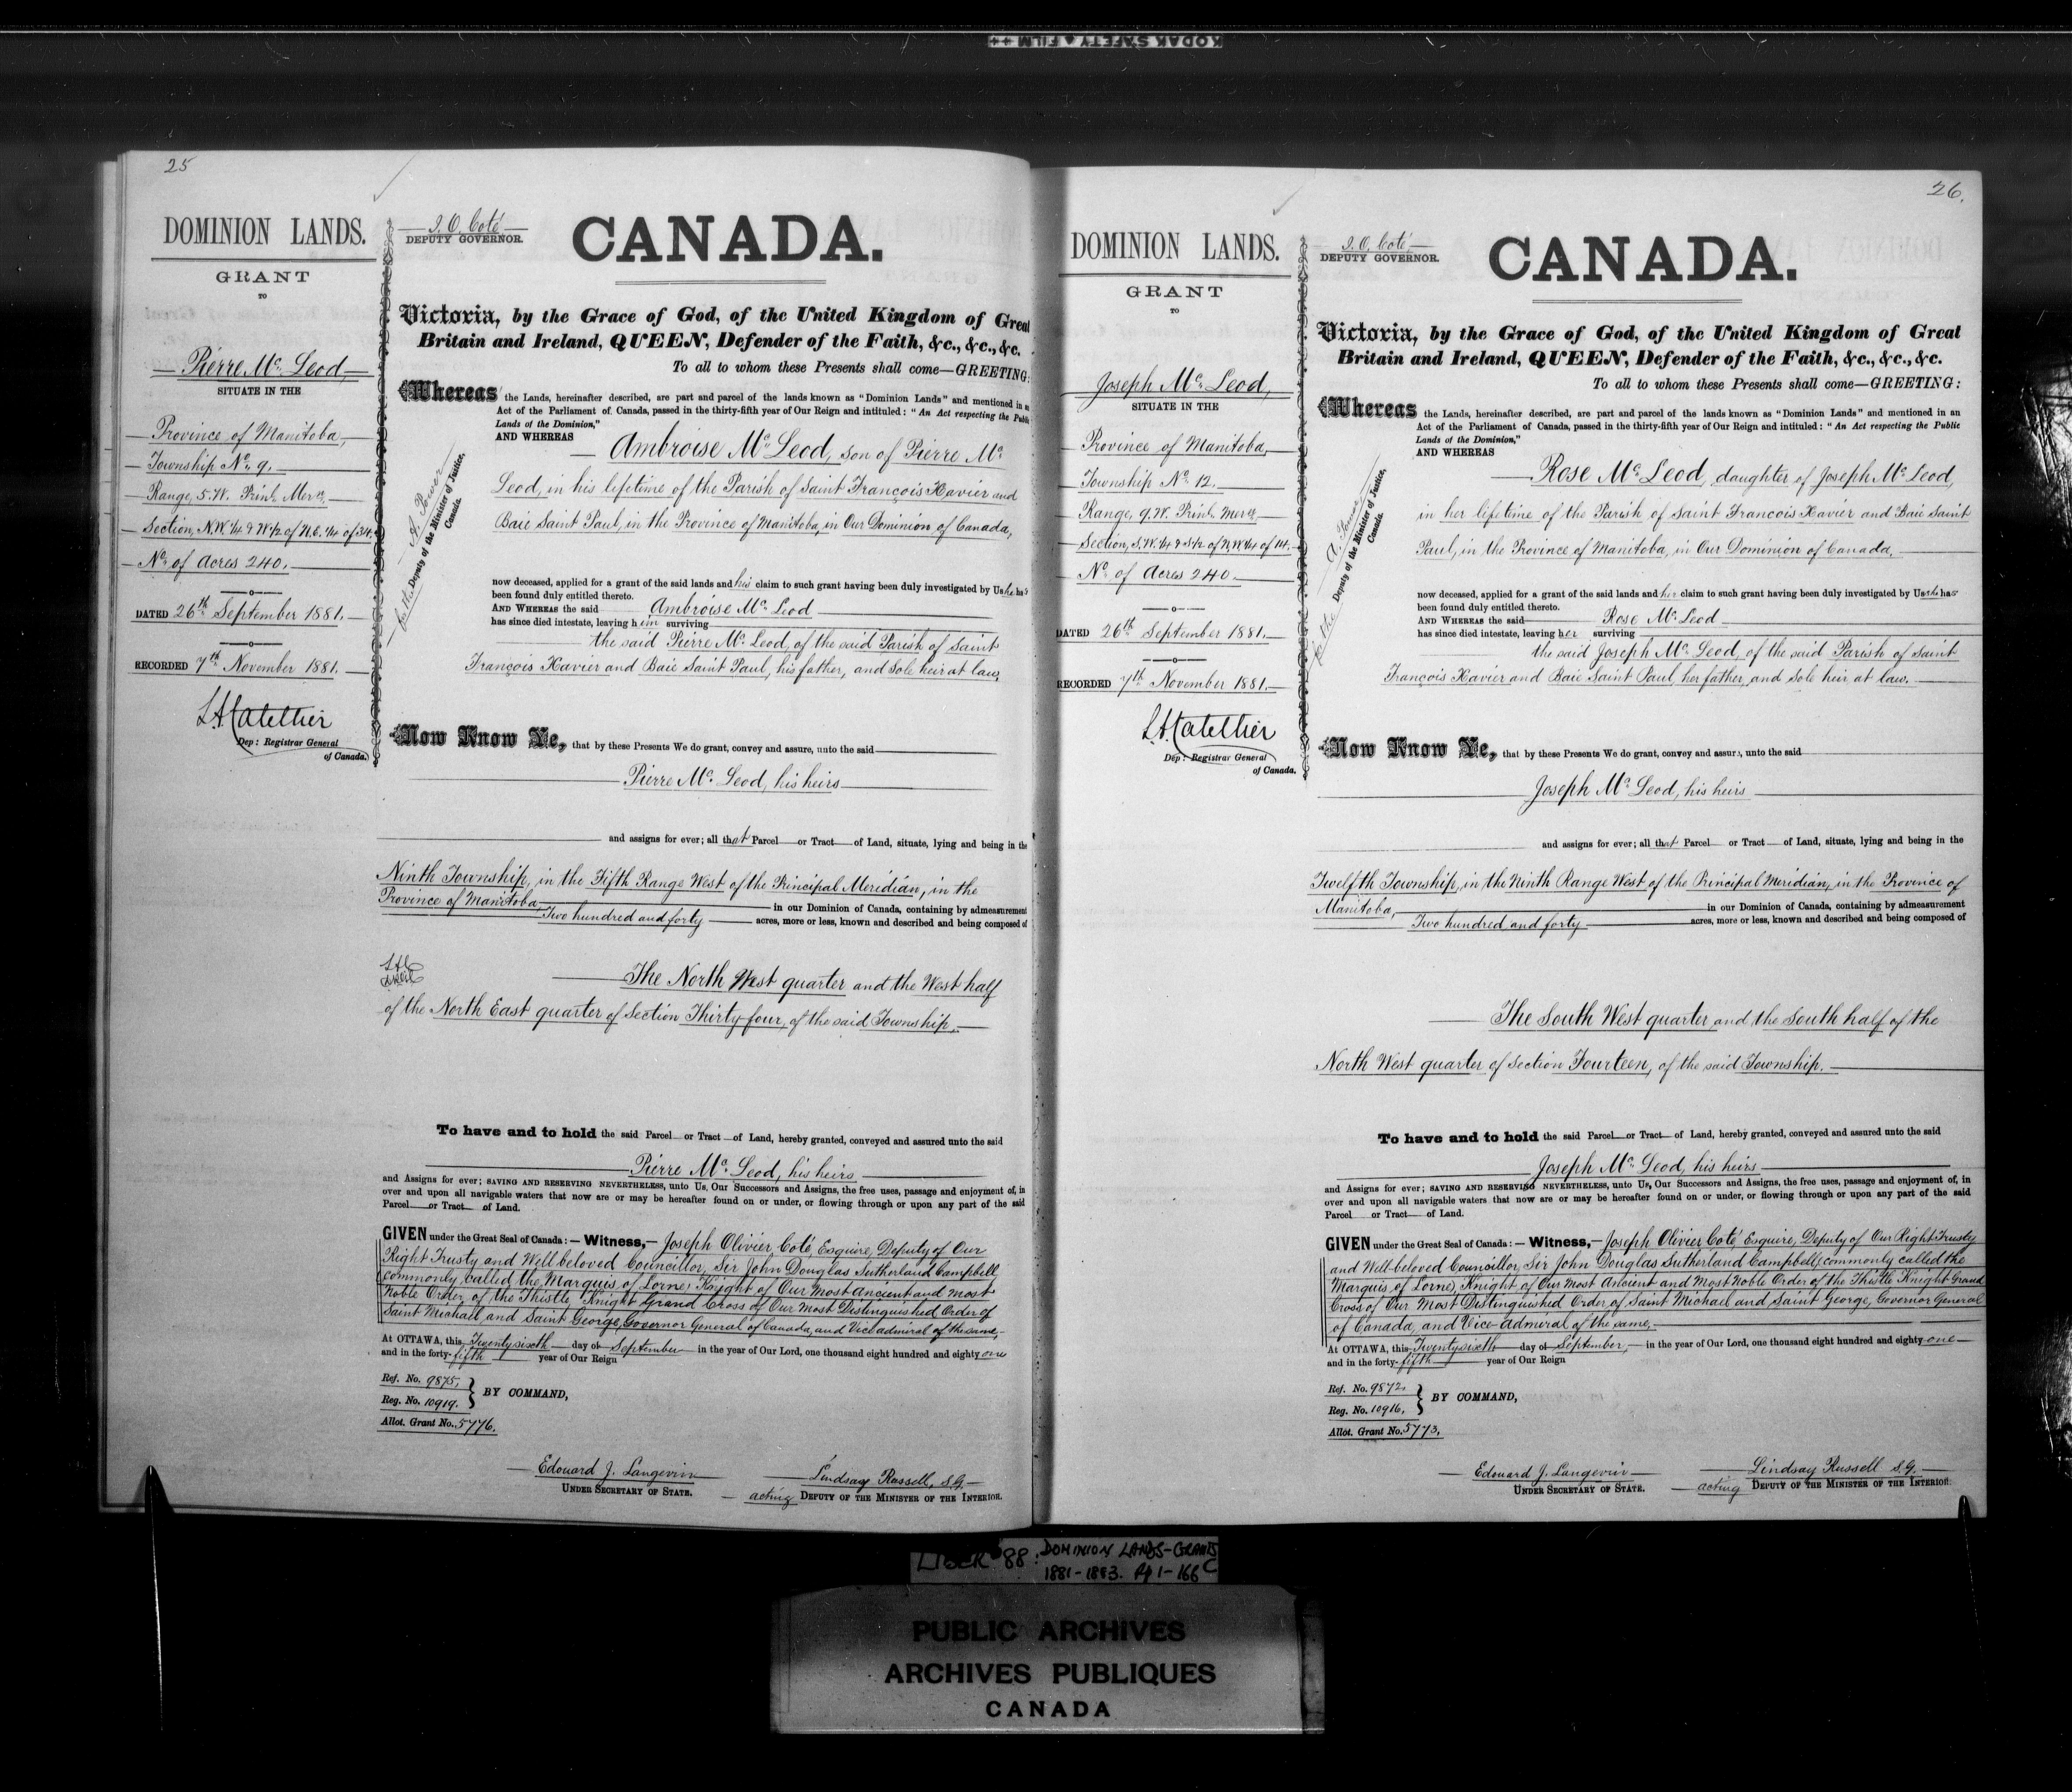 KODAK SAFETY FILM ++
25
DOMINION LANDS.
GRANT
TO
Pierre Mc. Leod,
SITUATE IN THE
Province of Manitoba,
Township No. 9.
Range, 5. W. Prin'l. Mer'n,
Section, N.W. 1/4 & W. 1/2 of N.E. 1/4 of 34.
No. of Acres 240.
DATED 26th September 1881.
RECORDED 7th November 1881.
L.A. Catellier
Dep: Registrar General
of Canada.
J. O. Coté
DEPUTY GOVERNOR.
CANADA.
A. Power
for the Deputy of the Minister of Justice,
Canada.
Victoria, by the Grace of God, of the United Kingdom of Great
Britain and Ireland, QUEEN, Defender of the Faith, &c., &c., &c.
To all to whom these Presents shall come—GREETING:
Whereas the Lands, hereinafter described, are part and parcel of the lands known as "Dominion Lands" and mentioned in an
Act of the Parliament of Canada, passed in the thirty-fifth year of Our Reign and intituled: "An Act respecting the Public
Lands of the Dominion,"
AND WHEREAS
Ambroise Mc. Leod, son of Pierre Mc.
Leod, in his lifetime of the Parish of Saint François Xavier and
Baie Saint Paul, in the Province of Manitoba, in Our Dominion of Canada,
now deceased, applied for a grant of the said lands and his claim to such grant having been duly investigated by Us he has
been found duly entitled thereto.
AND WHEREAS the said Ambroise Mc. Leod
has since died intestate, leaving him surviving
the said Pierre Mc. Leod, of the said Parish of Saint
François Xavier and Baie Saint Paul, his father, and sole heir at law.
Now Know Ye, that by these Presents We do grant, convey and assure, unto the said
Pierre Mc. Leod, his heirs
and assigns for ever; all that Parcel or Tract of Land, situate, lying and being in the
Ninth Township, in the Fifth Range West of the Principal Meridian, in the
Province of Manitoba in our Dominion of Canada, containing by admeasurement
Two hundred and forty acres, more or less, known and described and being composed of
The North West quarter and the West half
of the North East quarter of Section Thirty-four, of the said Township.
To have and to hold the said Parcel or Tract of Land, hereby granted, conveyed and assured unto the said
Pierre Mc. Leod, his heirs
and Assigns for ever; SAVING AND RESERVING NEVERTHELESS, unto Us, Our Successors and Assigns, the free uses, passage and enjoyment of, in
over and upon all navigable waters that now are or may be hereafter found on or under, or flowing through or upon any part of the said
Parcel or Tract of Land.
GIVEN under the Great Seal of Canada:— Witness,— Joseph Olivier Coté, Esquire, Deputy of Our
Right Trusty and Well-beloved Councillor, Sir John Douglas Sutherland Campbell
(commonly called the Marquis of Lorne) Knight of Our Most Ancient and Most
Noble Order of the Thistle, Knight Grand Cross of Our Most Distinguished Order of
Saint Michael and Saint George, Governor General of Canada, and Vice Admiral of the same,
At OTTAWA, this Twenty sixth day of September in the year of Our Lord, one thousand eight hundred and eighty one
and in the forty-fifth year of Our Reign
Ref. No. 9875.
Reg. No. 10919.
BY COMMAND,
Allot. Grant No. 5776.
Edouard J. Langevin
UNDER SECRETARY OF STATE.
Lindsay Russell, S.G.
acting DEPUTY OF THE MINISTER OF THE INTERIOR.
26.
DOMINION LANDS.
GRANT
TO
Joseph Mc. Leod,
SITUATE IN THE
Province of Manitoba,
Township No. 12.
Range, 9. W. Prin'l. Mer'n,
Section, S.W. 1/4 & S. 1/2 of N.W. 1/4 of 14.
No. of Acres 240.
DATED 26th September 1881.
RECORDED 7th November 1881.
L.A. Catellier
Dep: Registrar General
of Canada.
J. O. Coté
DEPUTY GOVERNOR.
CANADA.
A. Power
for the Deputy of the Minister of Justice,
Canada.
Victoria, by the Grace of God, of the United Kingdom of Great
Britain and Ireland, QUEEN, Defender of the Faith, &c., &c., &c.
To all to whom these Presents shall come—GREETING:
Whereas the Lands, hereinafter described, are part and parcel of the lands known as "Dominion Lands" and mentioned in an
Act of the Parliament of Canada, passed in the thirty-fifth year of Our Reign and intituled: "An Act respecting the Public
Lands of the Dominion,"
AND WHEREAS
Rose Mc. Leod, daughter of Joseph Mc. Leod,
in her lifetime of the Parish of Saint François Xavier and Baie Saint
Paul, in the Province of Manitoba, in Our Dominion of Canada,
now deceased, applied for a grant of the said lands and her claim to such grant having been duly investigated by Us she has
been found duly entitled thereto.
AND WHEREAS the said Rose Mc. Leod
has since died intestate, leaving her surviving
the said Joseph Mc. Leod, of the said Parish of Saint
François Xavier and Baie Saint Paul, her father, and sole heir at law.
Now Know Ye, that by these Presents We do grant, convey and assure, unto the said
Joseph Mc. Leod, his heirs
and assigns for ever; all that Parcel or Tract of Land, situate, lying and being in the
Twelfth Township, in the Ninth Range West of the Principal Meridian, in the Province of
Manitoba, in our Dominion of Canada, containing by admeasurement
Two hundred and forty acres, more or less, known and described and being composed of
The South West quarter and the South half of the
North West quarter of Section Fourteen, of the said Township.
To have and to hold the said Parcel or Tract of Land, hereby granted, conveyed and assured unto the said
Joseph Mc. Leod, his heirs
and Assigns for ever; SAVING AND RESERVING NEVERTHELESS, unto Us, Our Successors and Assigns, the free uses, passage and enjoyment of, in
over and upon all navigable waters that now are or may be hereafter found on or under, or flowing through or upon any part of the said
Parcel or Tract of Land.
GIVEN under the Great Seal of Canada:— Witness,— Joseph Olivier Coté, Esquire, Deputy of Our Right Trusty
and Well-beloved Councillor, Sir John Douglas Sutherland Campbell (commonly called the
Marquis of Lorne) Knight of Our Most Ancient and Most Noble Order of the Thistle, Knight Grand
Cross of Our Most Distinguished Order of Saint Michael and Saint George, Governor General
of Canada, and Vice-Admiral of the same,
At OTTAWA, this Twenty sixth day of September, in the year of Our Lord, one thousand eight hundred and eighty one
and in the forty-fifth year of Our Reign
Ref. No. 9872.
Reg. No. 10916.
BY COMMAND,
Allot. Grant No. 5773.
Edouard J. Langevin
UNDER SECRETARY OF STATE.
Lindsay Russell S.G.
acting DEPUTY OF THE MINISTER OF THE INTERIOR.
LIBER 88: DOMINION LANDS-GRANTS
1881-1883. Pp 1-166 C
PUBLIC ARCHIVES
ARCHIVES PUBLIQUES
CANADA